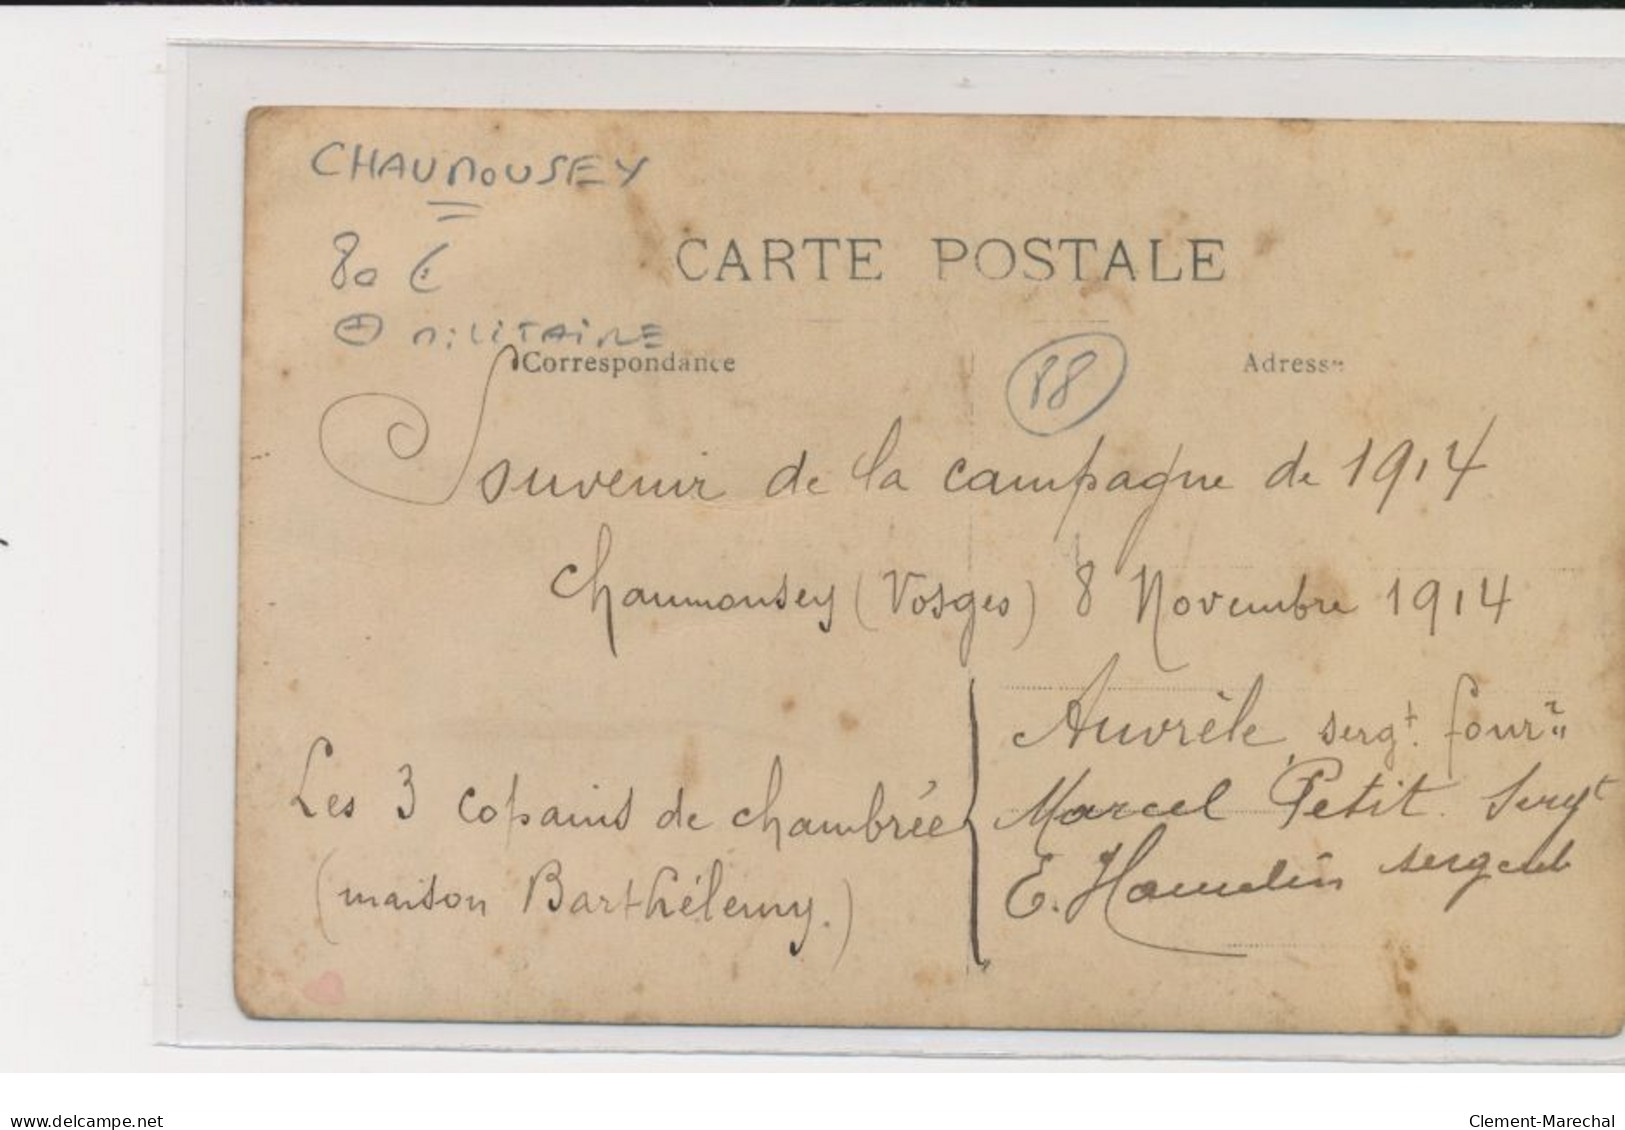 CHAUMOUSEY
80 €
+ MILITAIRE
CARTE POSTALE
Correspondance
Adresse
88
Souvenir de la campagne de 1914
Chaumousey (Vosges) 8 Novembre 1914
Auvrèle sergt. fourr
Les 3 copains de chambrée
Marcel Petit. Sergt
E. Hamelin sergent
(maison Barthélemy.)
www.delcampe.net
Clement-Marechal